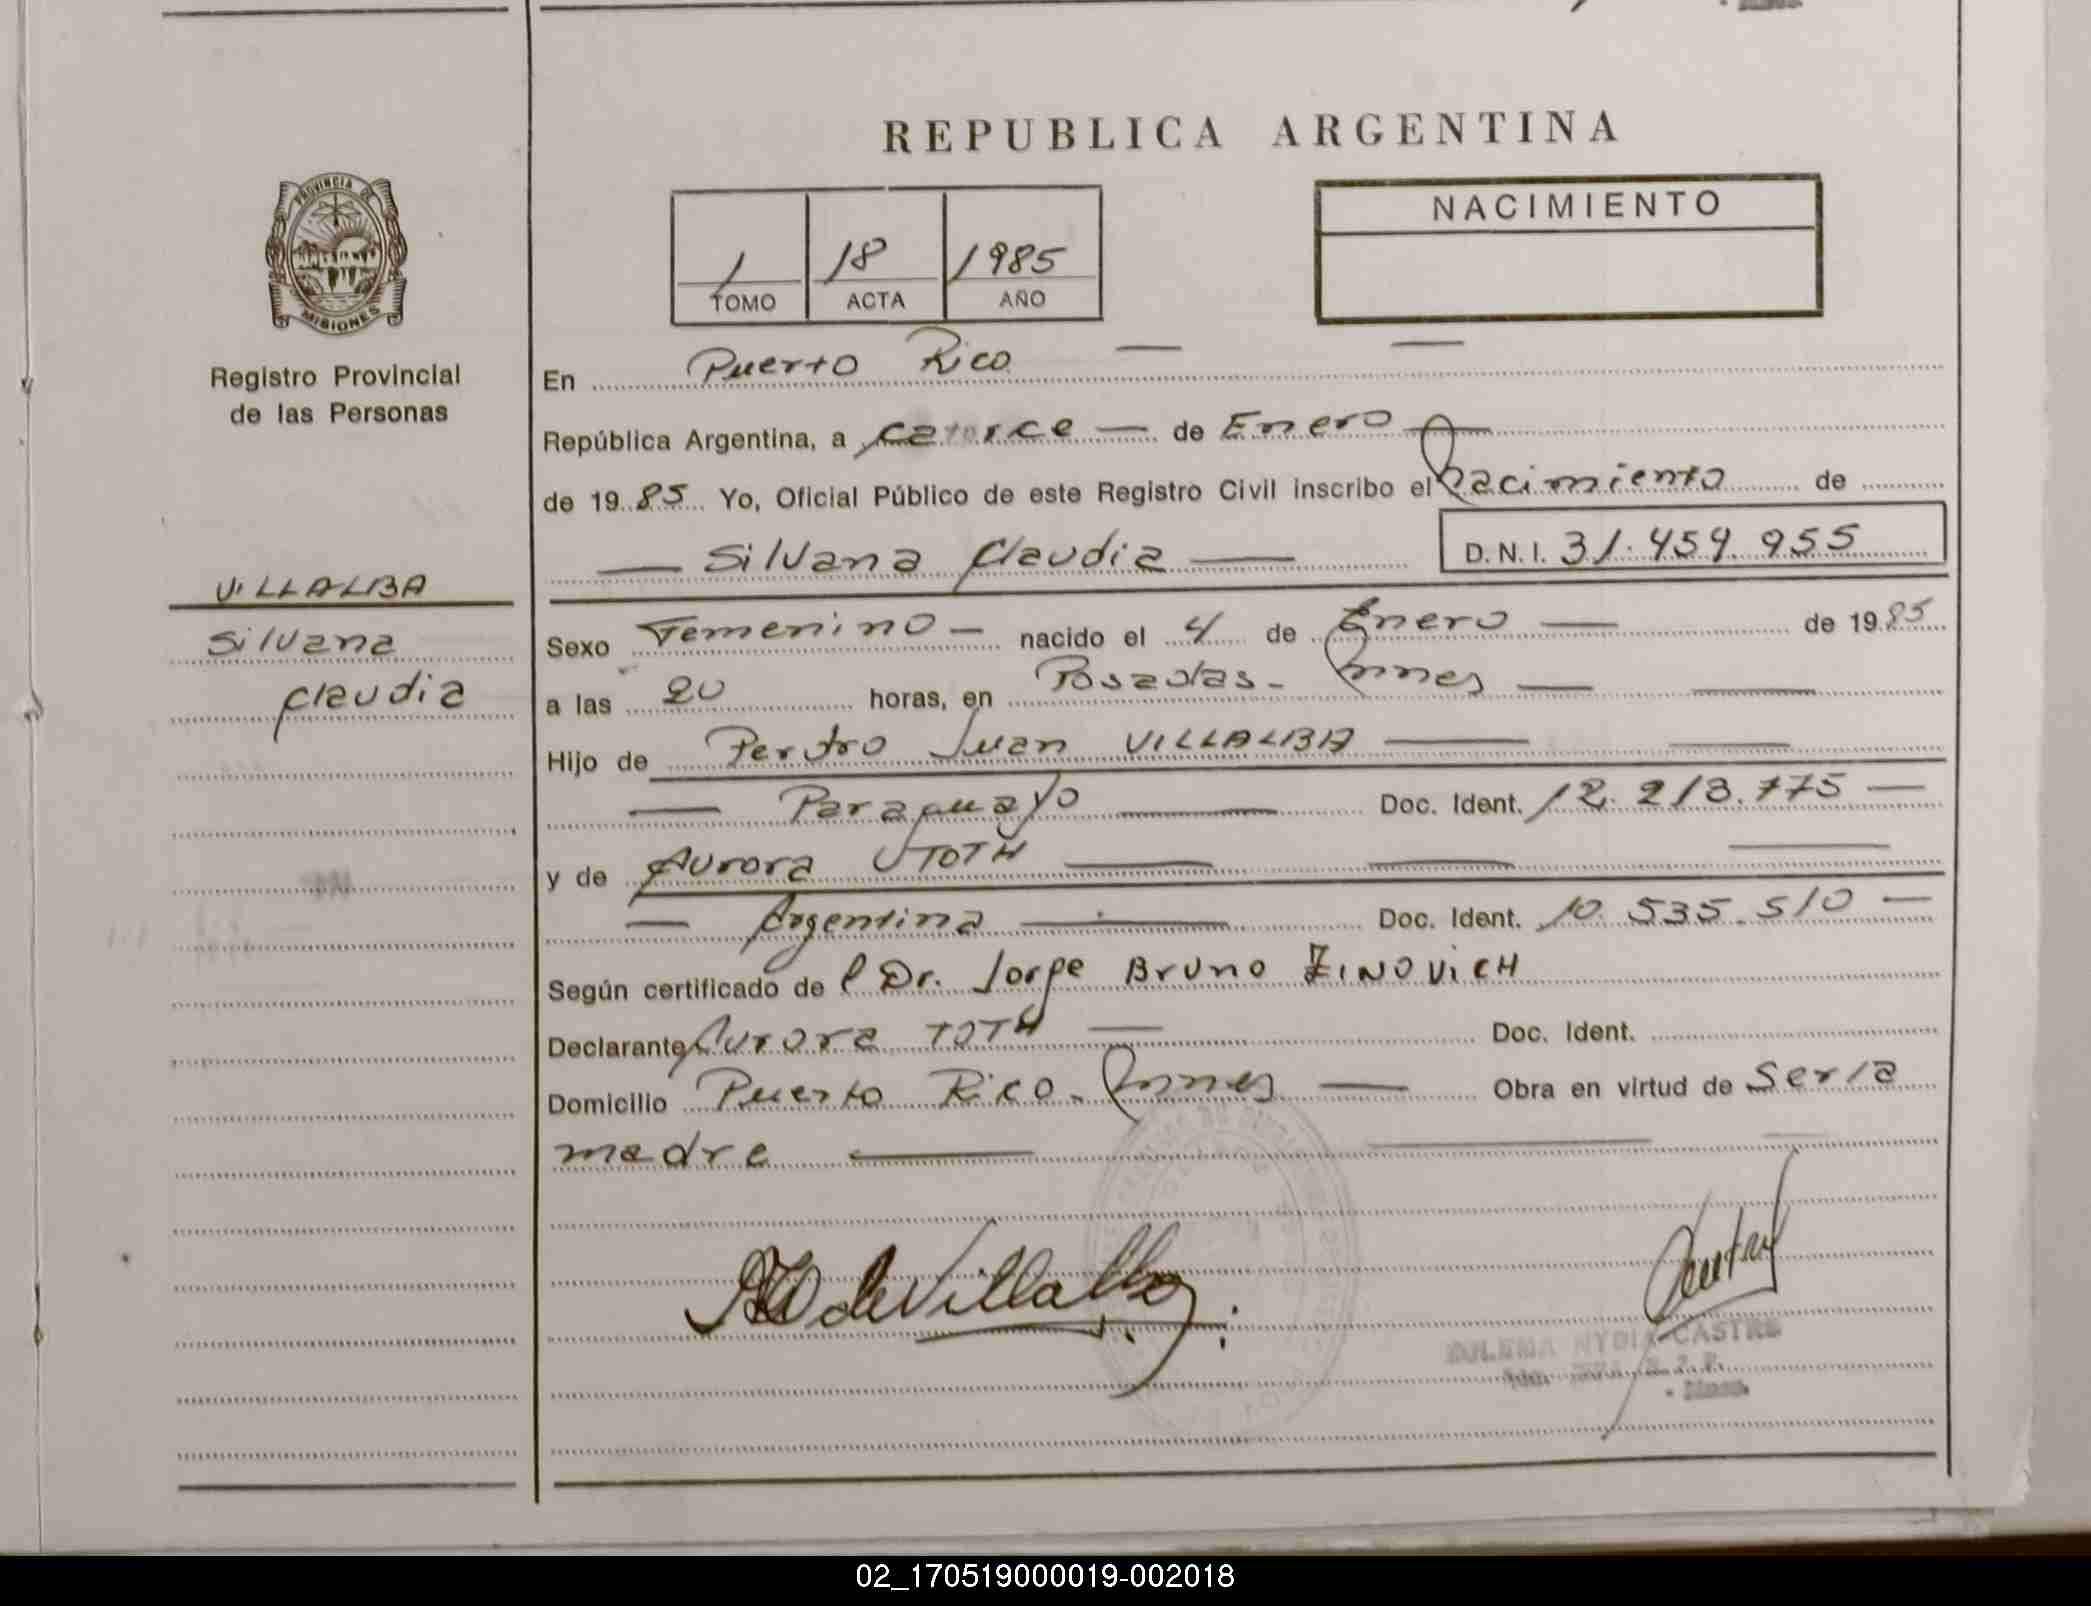 REPUBLICA ARGENTINA
PROVINCIA DE
MISIONES
Registro Provincial
de las Personas
NACIMIENTO
1 18 1985
TOMO ACTA AÑO
En Puerto Rico
República Argentina, a catorce de Enero
de 1985 Yo, Oficial Público de este Registro Civil inscribo el Nacimiento de
Silvana Claudia D.N.I. 31.459.955
VILLALBA
Silvana
Claudia
Sexo Femenino nacido el 4 de Enero de 1985
a las 20 horas, en Posadas - Mnes
Hijo de Pedro Juan VILLALBA
Paraguayo Doc. Ident. 12.213.775
y de Aurora TOTH
Argentina Doc. Ident. 10.535.510
Según certificado de l Dr. Jorge Bruno ZINOVICH
Declarante Aurora TOTH Doc. Ident.
Domicilio Puerto Rico - Mnes Obra en virtud de Ser la
madre
de Villalba
NYDIA CASTRO
02_170519000019-002018